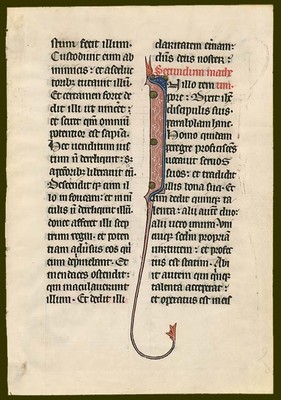 stum fecit illum.
Custodiuit eum ab
inimicis : et a seduc
torib; tutauit illum.
Et certamen forte de
dit illi ut uincēt :
et sciret qm̄ omniū
potentior est sapiētia.
Hec uenditum ius
tum n̄ dereliquit : s;
a p̄cc̄orib; liberauit eū.
Descendit q; cum il
lo in foueam : et in uin
culis n̄ dereliquit illū :
donec afferret illi scep
trum regni : et poten
tiam adūsus eos qui
eum deprimebant. Et
mendaces ostendit :
qui maculauerunt
illum. Et dedit illi
claritatem et̄nam :
dn̄s deus noster.
Secundum math
In illo tem um.
pore : Dixit ih̄s
discipulis suis
parabolam hanc.
Homo quidam
peregre proficiscēs
uocauit seruos
suos : et tradidit
illis bona sua. Et
uni dedit quinq; ta
lenta : alii aut̄ duo :
alii uero unum . uni
cuiq; scd̄m propriā
uirtutem : et profec
tus est statim. Abi
it autem qui quīq;
talenta acceperat :
et operatus est in eis